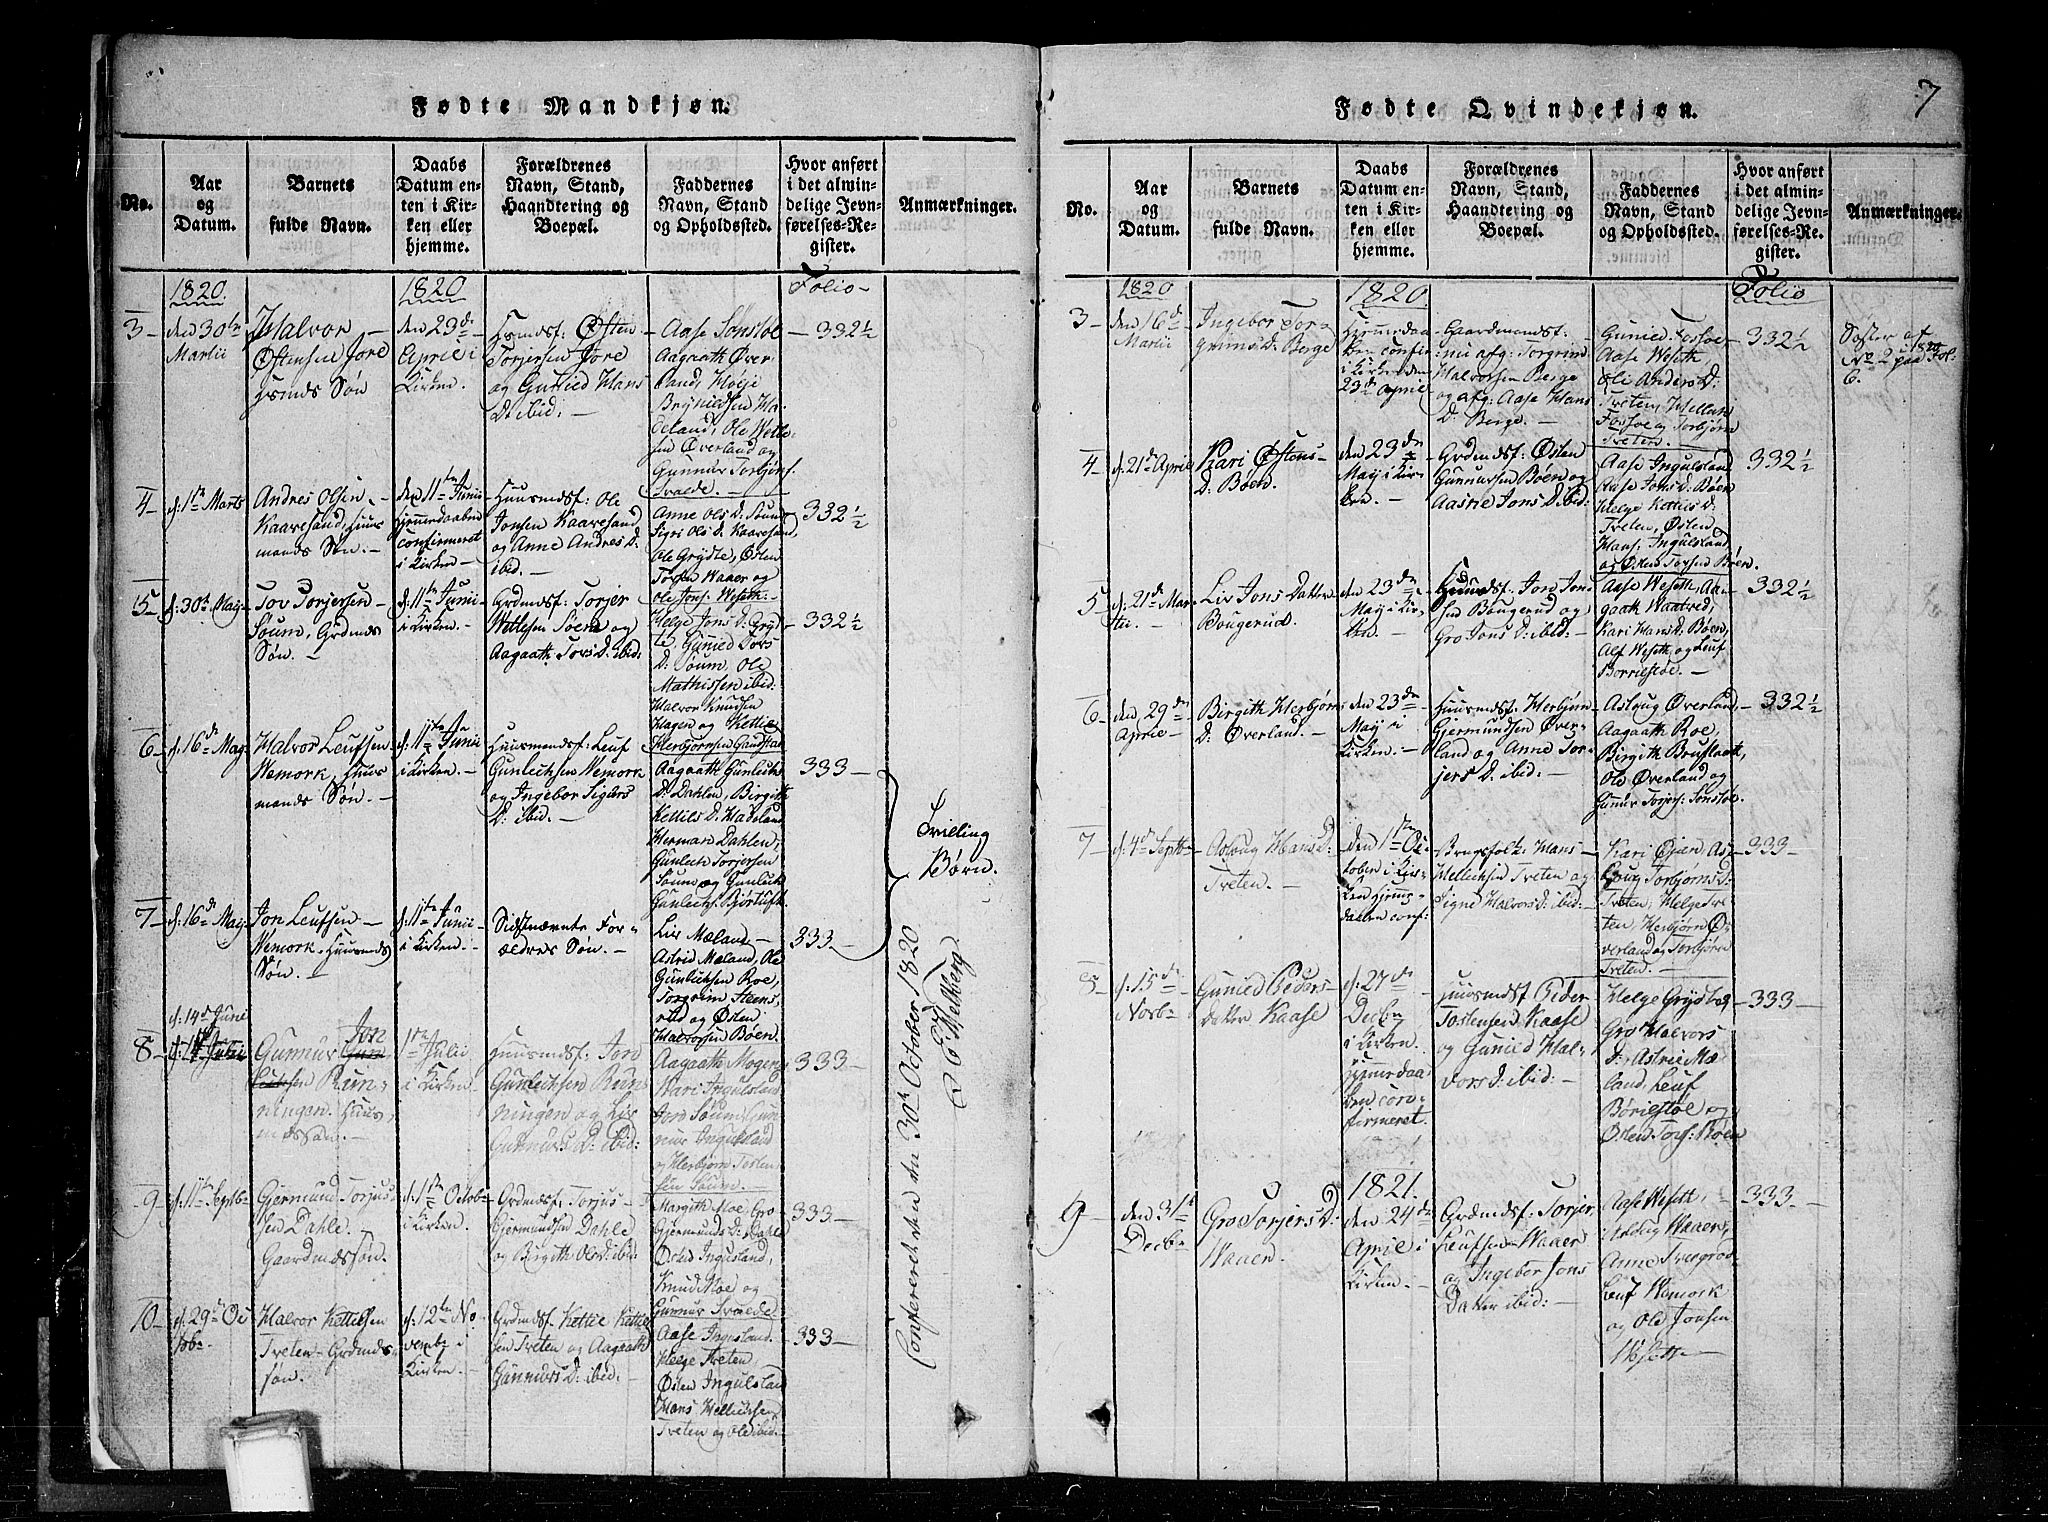 Fødte Mandkjøn.
No.
Aar
og
Datum.
Barnets
fulde Navn.
Daabs
Datum en-
ten i Kir-
ken eller
hjemme.
Forældrenes
Navn, Stand,
Haandtering og
Boepæl.
Faddernes
Navn, Stand
og Opholdssted.
Hvor anført
i det almin-
delige Jevn-
førelses-Re-
gister.
Anmærkninger.
1820.
1820
Folio
3
den 30te
Martii
Halvor
Østensen Jore
den 23de
April i
Kirken.
Østen
Torjersen Jore
og Gunild Hans
D: ibid:
Aase Sønstøe
Aagaath Øver
land,
Ole Wetle-
sen Øverland og
Gunnur Torbjørs.
Traede.
332½
4
d: 1te Marts
Andres Olsen
Kaavesand, Huus
mands Søn.
den 11te Junii
hjemmedaaben
confirmeret
i Kirken.
Huusmdsf: Ole
Jonsen Kaavesand
og Anne Andres D:
ibid.
Anne Ols D: Soum
Sigri Ols D: Kaavesand,
Ole Grydte, Østen
Torsen Waaer og
Ole Jons: Weseth.
332½
5
d: 30te Maj
Tov Torjersen
Soum, Grdmds
Søn.
d: 11te Junii
i Kirken.
Grdmdsf: Torjer
Wetlesen Soem og
Aagaath Tors D: ibid:
Helge Jons D: Gryd
te, Gunild Tors
D: Soum, Ole
Mathissen ibid:
Halvor Knudsen
Hagen og Kettil
Herbjørnsen
332½
6
d: 16de Maj
Halvor Leufsen
Wemork, Huus
mands Søn.
d: 11te Junii
i Kirken.
Huusmandsf: Leuf
Gunlechsen Wemork
og Ingebor Sigurs
D: ibid:
Aagaath Gunlechs
D: Dahlen, Birgith
Kettils D: Hadeland
Herman Dahlen,
Gunlech Torjersen
Soum og Gunleik
Gunlechs: Bjørtuft.
333
Tvilling
Børn.
7
d: 16de Maj
Jon Leufsen
Wemork, Huusmds
Søn.
d: 11te Junii
i Kirken.
Sidstnævnte For-
ældres Søn.
Liv Mæland
Astrid Mæland, Ole
Gunlechsen Roe,
Torgrim Steens
rud og Østen
Halvorsen Bøen.
333
d: 14de Juni
8
Gunnur Jon
sen Run-
ningen, Huus
mdssøn.
1te Julii
i Kirken.
Huusmdsf: Jon
Gunlechsen Run
ningen og Liv
Gunnurs D: ibid:
Aagaath Mogens
Kari Ingulsland
Jord Soum, Gun
nur Ingulsland
og Herbjørn Tosten
sen Soum.
333
9
d: 11te Septb
Gjermund Torjus
sen Dahle
Gaardmdssøn.
d: 1te Octob
i Kirken.
Grdmdsf: Torjus
Gjermundsen Dahle
og Birgith Ols D: ibid:
Margith Moe, Gro
Gjermunds D: Dahle
Østen Ingulsland,
Knud Moe og
Gunnur Traede
333
10
d: 29de Oc
tob.
Halvor Kettilsen
Tveten Grdmds
søn.
d: 12te No
vemb i
Kirken.
Grdmdsf: Kettil Kettil
sen Tveten og Aagaath
Gunnurs D: ibid:
Aase Ingulsland
Helge Tveten,
Østen Ingulsland
Hans Hellichsen
Tveten og Ole ibid.
333
Confereret den 30te October 1820
Hellberg
7
Fødte Qvindekjøn.
No.
Aar
og
Datum.
Barnets
fulde Navn.
Daabs
Datum en-
ten i Kir-
ken eller
hjemme.
Forældrenes
Navn, Stand,
Haandtering og
Boepæl.
Faddernes
Navn, Stand
og Opholdssted.
Hvor anført
i det almin-
delige Jevn-
førelses-Re-
gister.
Anmærkninger.
1820
1820.
Folio
3
den 16de
Martii
Ingebor Tor-
grims D: Berge
Hjemmedaa
ben confir
i Kirken den
23de April
Gaardmandsf:
nu afg: Torgrim
Halvorsen Berge
og afg: Aase Hans
D: Berge.
Gunild Fossoe
Aase Weseth,
Anders D:
Tveten, Helleic
Fossoe og Torbjørn
Tveten.
332½
Søster af
No 2 paa Fol.
6.
4
d: 21de April
Kari Østens
D: Bøen.
den 23de
Maj i Kir-
ken.
Grdmdsf: Østen
Gunnursen Bøen og
Aasne Jons D: ibid:
Aase Ingulsland
Aase Jons D: Bøen
Helge Kettils D:
Tveten, Østen
Hans: Ingulsland
og Østen Torsen Bøen.
332½
5
d: 21de Mar
tii.
Liv Jons Datter
Bougerud.
den 23de
Maj i Kir-
ken.
Jon Jon
sen Bougerud og
Gro Jons D: ibid:
Aase Weseth, Aa-
gaath Waatved,
Kari Hans D: Bøen,
Alf Weseth, og Leuf
Borrilstøe.
332½
6
den 29de
April
Birgith Herbjørn
D: Øverland.
den 23de
Maj i
Kirken.
Huusmdsf: Herbjørn
Gjermundsen Øver-
land og Anne Tor-
jers D: ibid:
Aslaug Øverland,
Aagaath Roe,
Birgith Brustaath,
Ole Øverland og
Gunnur Torjers: Sønstøe.
332½
7
d: 4de Septb
Aslaug Hans D:
Tveten.
den 1te Oc
tober i Kir
ken hjemme
daaben conf:
Brugsfolk: Hans
Hellechsen Tveten og
Signe Halvors D: ibid:
Kari Øian, As-
loug Torbjørns D:
Tveten, Helge Tve
ten, Herbjørn Ø-
verland og Torbjørn
Tveten.
333
8
d: 15de
Novb
Gunild Peders
Datter Kaase
d: 27de
Decb
i Kirken
hjemmedaa
ben con-
firmeret.
Huusmdsf Peder
Tostensen Kaase
og Gunild Hal-
vors D: ibid:
Helge Grydte,
Gro Halvors
D: Astrid Mæ
land, Leuf
Børilstøe og
Østen Tors: Bøen
333
1821.
9
den 31te
Decb
Gro Torjers D:
Waaer.
den 24de
April i
Kirken.
Grdmdsf: Torjer
Leufsen Waaer
og Ingebor Jons
Datter ibid:
Aase Weseth,
Waaer,
Anne Tvergrov
Leuf Wemork
og Ole Jonsen
Weseth
333